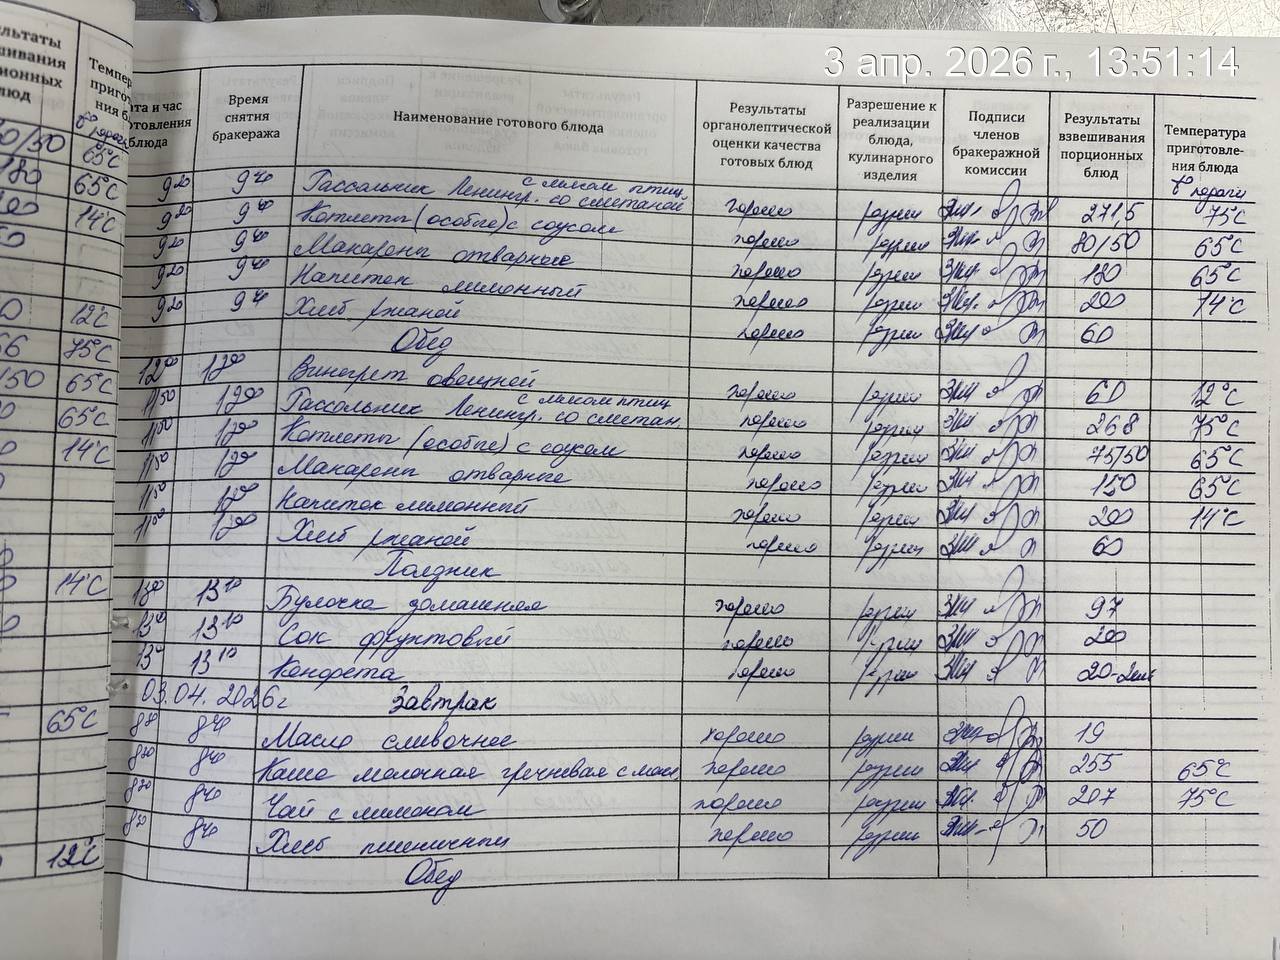 3 апр. 2026 г., 13:51:14
Время снятия бракеража
Наименование готового блюда
Результаты органолептической оценки качества готовых блюд
Разрешение к реализации блюда, кулинарного изделия
Подписи членов бракеражной комиссии
Результаты взвешивания порционных блюд
Температура приготовле-ния блюда
t° подачи
9²⁰ 9⁴⁰ Рассольник Ленингр. с мясом птиц. со сметаной хорошо разреш 271,5 75°C
9²⁰ 9⁴⁰ Котлеты (особые) с соусом хорошо разреш 80/50 65°C
9²⁰ 9⁴⁰ Макароны отварные хорошо разреш 180 65°C
9²⁰ 9⁴⁰ Напиток лимонный хорошо разреш 200 14°C
9²⁰ 9⁴⁰ Хлеб ржаной хорошо разреш 60
Обед
12⁰⁰ Винегрет овощной хорошо разреш 60 12°C
11⁵⁰ 12⁰⁰ Рассольник Ленингр. с мясом птиц со сметан. хорошо разреш 268 75°C
11⁵⁰ 12⁰⁰ Котлеты (особые) с соусом хорошо разреш 75/50 65°C
11⁵⁰ 12⁰⁰ Макароны отварные хорошо разреш 150 65°C
11⁵⁰ 12⁰⁰ Напиток лимонный хорошо разреш 200 14°C
12⁰⁰ Хлеб ржаной хорошо разреш 60
Полдник
13⁰⁰ 13¹⁰ Булочка домашняя хорошо разреш 97
13⁰⁰ 13¹⁰ Сок фруктовый хорошо разреш 200
13⁰⁰ 13¹⁰ Конфета хорошо разреш 20-2шт
03.04.2026г Завтрак
8³⁰ 8⁴⁰ Масло сливочное хорошо разреш 19
8³⁰ 8⁴⁰ Каша молочная гречневая с масл хорошо разреш 255 65°C
8³⁰ 8⁴⁰ Чай с лимоном хорошо разреш 207 75°C
8³⁰ 8⁴⁰ Хлеб пшеничный хорошо разреш 50
Обед